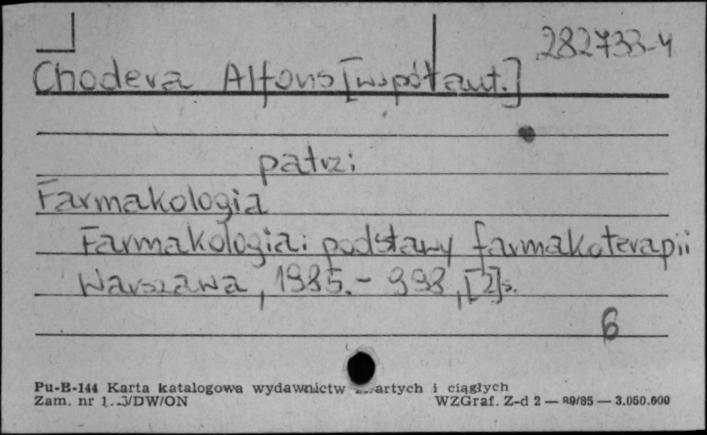 282733-4
Chodera Alfons [współaut.]
patrz:
Farmakologia
Farmakologia i podstawy farmakoterapii
Warszawa, 1985. - 998, [2]s.
6
Pu-B-144 Karta katalogowa wydawnictw i ciągłych
Zam. nr WZGraf. Z-d 2 — 89/85 — 3.050.000